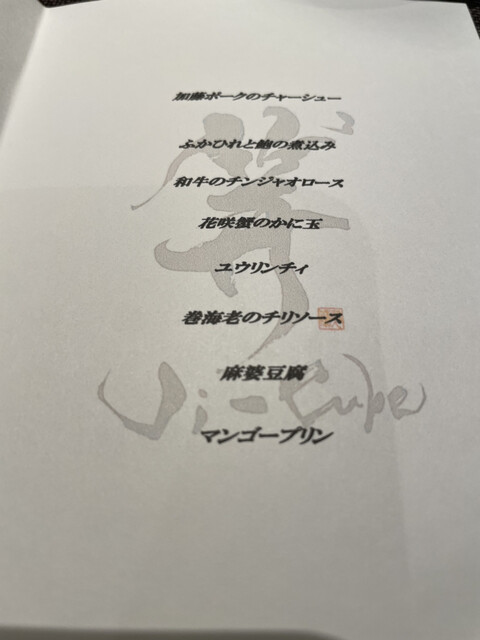 加藤ポークのチャーシュー
ふかひれと鮑の煮込み
和牛のチンジャオロース
花咲蟹のかに玉
ユウリンチィ
巻海老のチリソース
麻婆豆腐
マンゴープリン
Ji-Cube